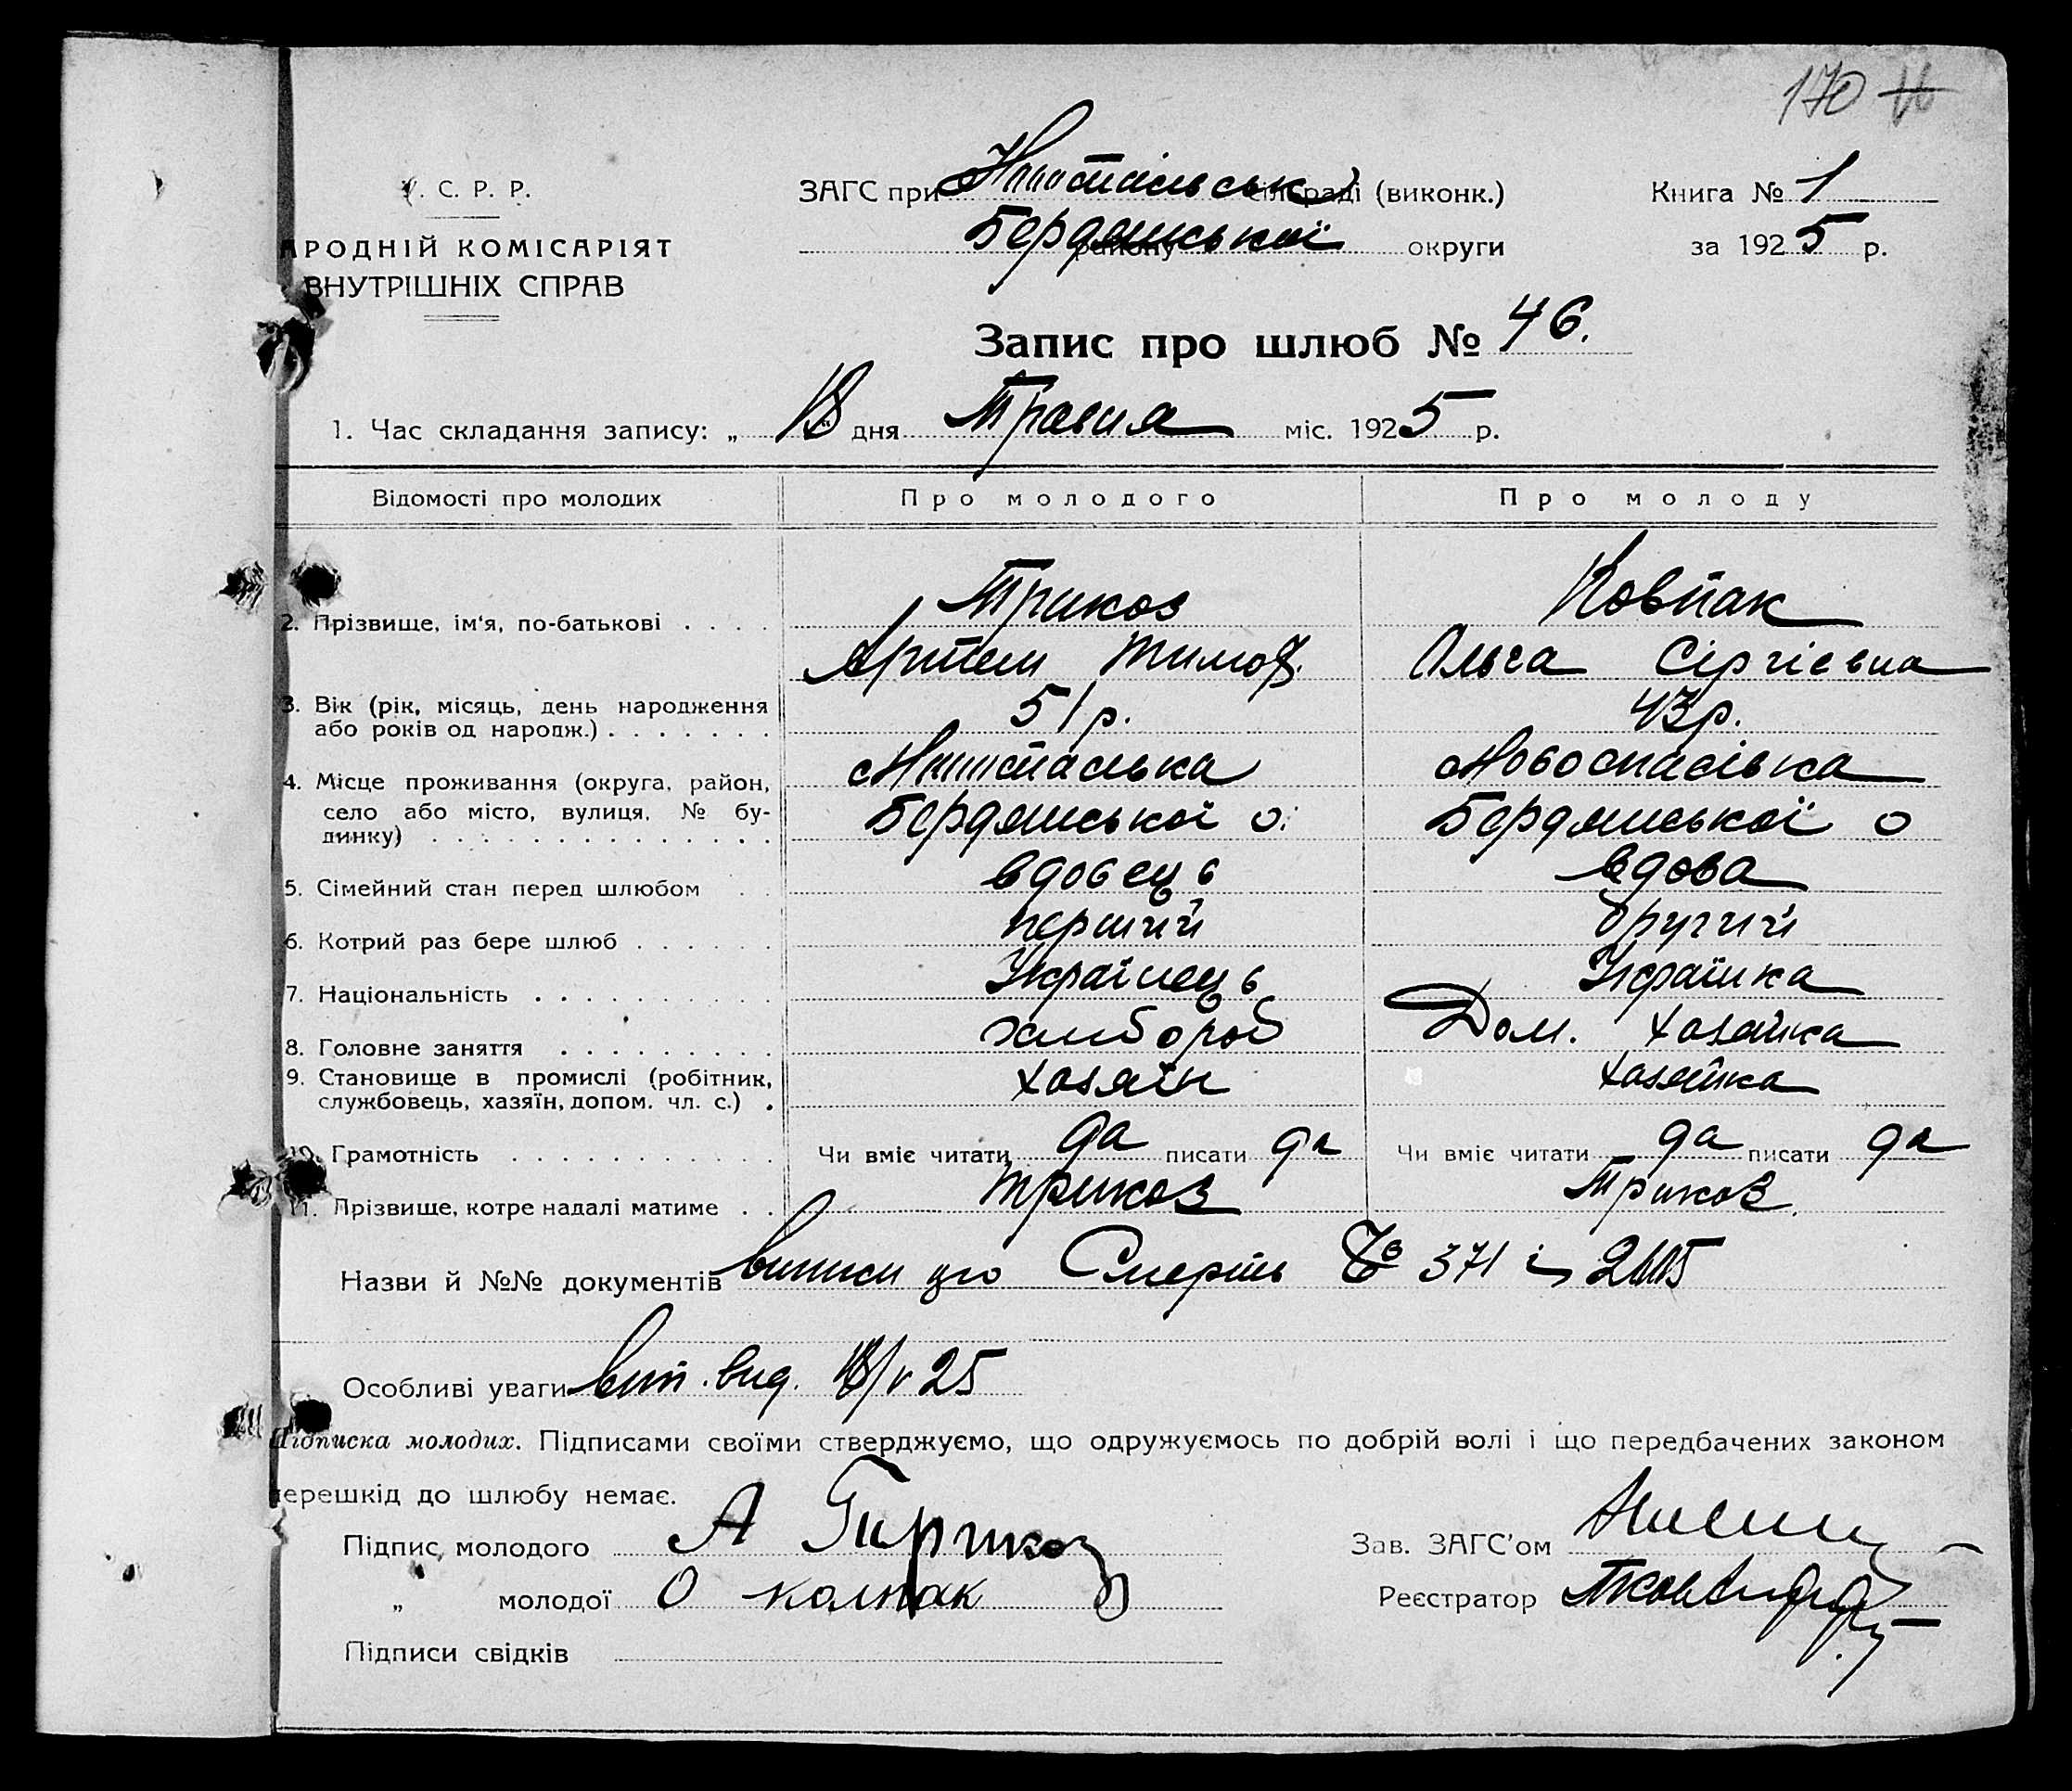 170
У. С. Р. Р.
ЗАГС при сільраді (виконк.)
Книга № 1
АРОДНІЙ КОМІСАРІЯТ
Бердянської району округи
за 1925 р.
ВНУТРІШНІХ СПРАВ
Запис про шлюб № 46.
1. Час складання запису: „ 18 " дня Травня міс. 1925 р.
Відомості про молодих Про молодого Про молоду
Трикоз Ковпак
2. Прізвище, ім'я, по-батькові . . . .
Артем Тимоф. Ольга Сергієвна
3. Вік (рік, місяць, день народження 51 р. 43 р.
або років од народж.) . . . . . . .
4. Місце проживання (округа, район, Новоспасівка
село або місто, вулиця, № бу- Бердянської о. Бердянської о
динку) . . . . . . . . . . . . . .
5. Сімейний стан перед шлюбом . . вдовець вдова
6. Котрий раз бере шлюб . . . . . . перший другий
7. Національність . . . . . . . . . . Українець Українка
8. Головне заняття . . . . . . . . . хлибороб Дом. хозяйка
9. Становище в промислі (робітник, хозяїн хозяйка
службовець, хазяїн, допом. чл. с.) .
10. Грамотність . . . . . . . . . . . Чи вміє читати да писати да Чи вміє читати да писати да
11. Прізвище, котре надалі матиме . . Трикоз Трикоз.
Назви й №№ документів Виписи про Смерть № 371 і
Особливі уваги Вип. вид. 18/V 25
Підписка молодих. Підписами своїми стверджуємо, що одружуємось по добрій волі і що передбачених законом
перешкід до шлюбу немає.
Підпис молодого А Тирикоз Зав. ЗАГС'ом
„ молодої О колпак Реєстратор
Підписи свідків